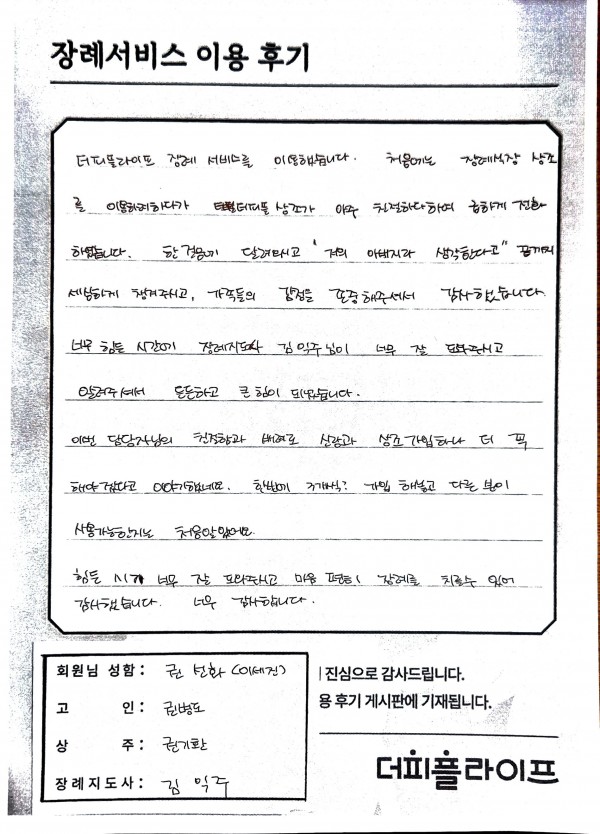 장례서비스 이용 후기
더피플라이프 장례 서비스를 이용했습니다. 처음에는 장례식장 상조
를 이용하려하다가 더피플 상조가 아주 친절하다하여 급하게 전화
하였습니다. 한걸음에 달려와주시고 "저의 아버지라 생각한다고" 끝까지
세심하게 챙겨주시고, 가족들의 감정을 존중해주셔서 감사했습니다.
너무 힘든 시간에 장례지도사 김익주님이 너무 잘 도와주시고
알려주셔서 든든하고 큰 힘이 되었습니다.
이번 담당자님의 친절함과 배려로 신랑과 상조가입하나 더 꼭
해야겠다고 이야기했네요. 한번에 가입 해놓고 다른 분이
사용가능한지는 처음알았어요.
힘든 시기 너무 잘 도와주시고 마음 편히 장례를 치를수 있어
감사했습니다. 너무 감사합니다.
회원님 성함 : 권 선화 (이세진)
고 인 : 권병도
상 주 : 권기환
장례지도사 : 김 익주
진심으로 감사드립니다.
용 후기 게시판에 기재됩니다.
더피플라이프